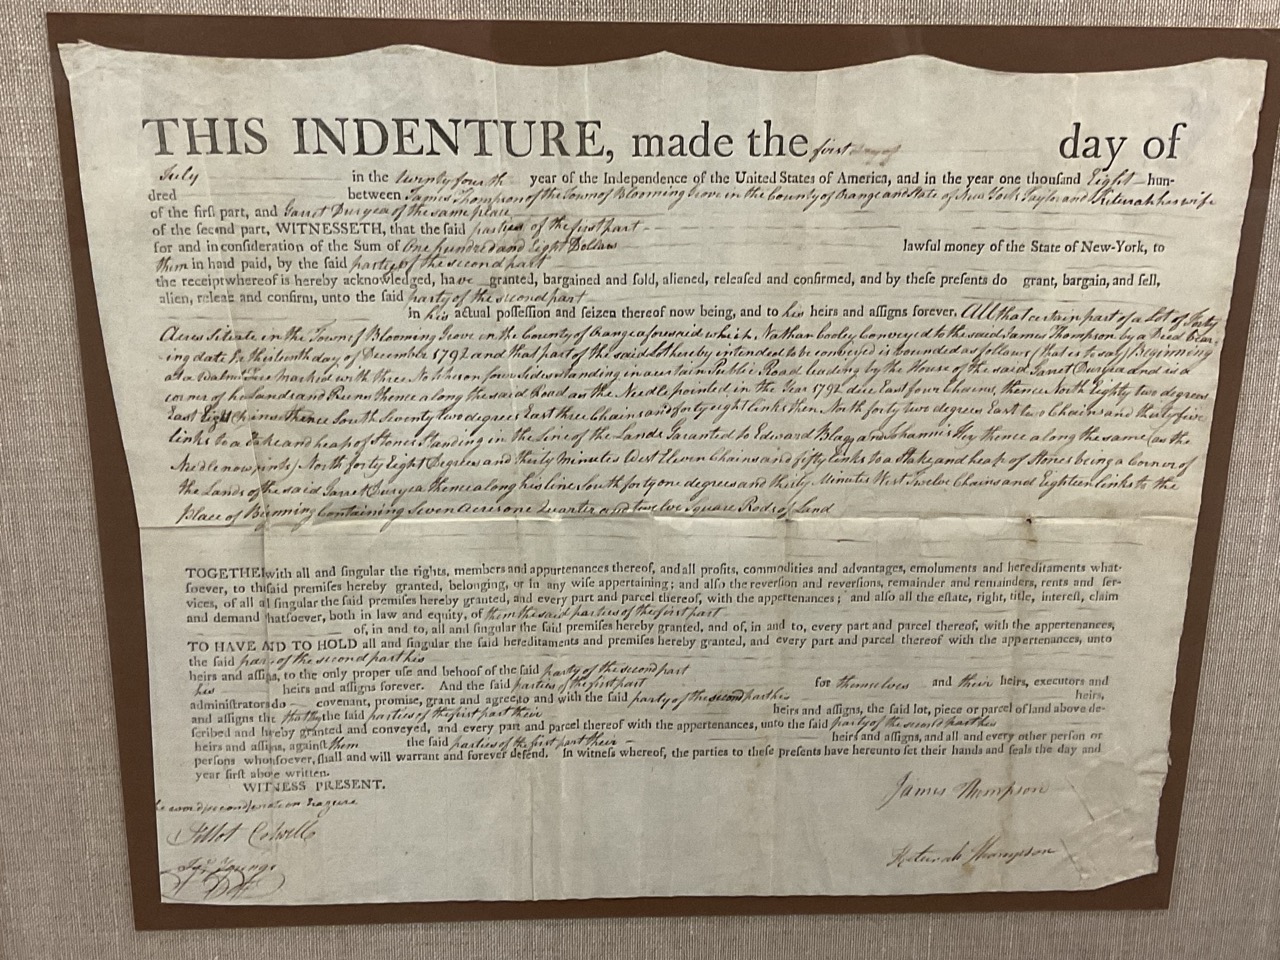 THIS INDENTURE, made the first day of
July in the twenty fourth year of the Independence of the United States of America, and in the year one thousand Eight hun-
dred between James Thompson of the Town of Blooming Grove in the County of Orange and State of New York Taylor and Keturah his wife
of the first part, and Garret Duryea of the same place
of the second part, WITNESSETH, that the said parties of the first part
for and in consideration of the Sum of One hundred and Eight Dollars lawful money of the State of New-York, to
them in hand paid, by the said party of the second part
the receipt whereof is hereby acknowledged, have granted, bargained and sold, aliened, released and confirmed, and by these presents do grant, bargain, and sell,
alien, release and confirm, unto the said party of the second part
in his actual possession and seizen thereof now being, and to his heirs and assigns forever, All that certain part of a Lot of Forty
Acres Situate in the Town of Blooming Grove in the County of Orange aforesaid which Nathan Cooley Conveyed to the said James Thompson by a Deed bear-
ing date the day of December 1792 and that part of the said Lot hereby intended to be conveyed is bounded as follows (that is to say) Beginning
at a Walnut Tree marked with three Notches on four Sides standing in a certain Public Road leading by the House of the said Garret Duryea and is a
corner of his Lands and Runs thence along the said Road as the Needle pointed in the Year 1792 due East four Chains, thence North Eighty two degrees
East Eight Chains thence South Seventy two degrees East three Chains and forty eight links then North forty two degrees East two Chains and thirty five
links to a Stake and heap of Stones Standing in the Line of the Lands Garanted to Edward Blagg and Johannis Hey thence along the same (as the
Needle now points) North forty Eight Degrees and thirty minutes West Eleven Chains and fifty links to a Stake and heap of Stones being a Corner of
the Lands of the said Garret Duryea thence along his line South forty one degrees and thirty Minutes West Twelve Chains and Eighteen links to the
Place of Beginning Containing Seven Acres one Quarter and twelve Square Rods of Land
TOGETHER with all and singular the rights, members and appurtenances thereof, and all profits, commodities and advantages, emoluments and hereditaments what-
soever, to the said premises hereby granted, belonging, or in any wise appertaining; and also the reversion and reversions, remainder and remainders, rents and ser-
vices, of all and singular the said premises hereby granted, and every part and parcel thereof, with the appertenances; and also all the estate, right, title, interest, claim
and demand whatsoever, both in law and equity, of them the said parties of the first part
of, in and to, all and singular the said premises hereby granted, and of, in and to, every part and parcel thereof, with the appertenances,
TO HAVE AND TO HOLD all and singular the said hereditaments and premises hereby granted, and every part and parcel thereof with the appertenances, unto
the said party of the second part his
heirs and assigns, to the only proper use and behoof of the said party of the second part
his heirs and assigns forever. And the said parties of the first part for themselves and their heirs, executors and
administrators do covenant, promise, grant and agree to and with the said party of the second part his heirs,
and assigns that they the said parties of the first part their heirs and assigns, the said lot, piece or parcel of land above de-
scribed and hereby granted and conveyed, and every part and parcel thereof with the appertenances, unto the said party of the second part his
heirs and assigns, against them the said parties of the first part their heirs and assigns, and all and every other person or
persons whomsoever, shall and will warrant and forever defend. In witness whereof, the parties to these presents have hereunto set their hands and seals the day and
year first above written.
WITNESS PRESENT.
James Thompson
Colwell
Keturah Thompson